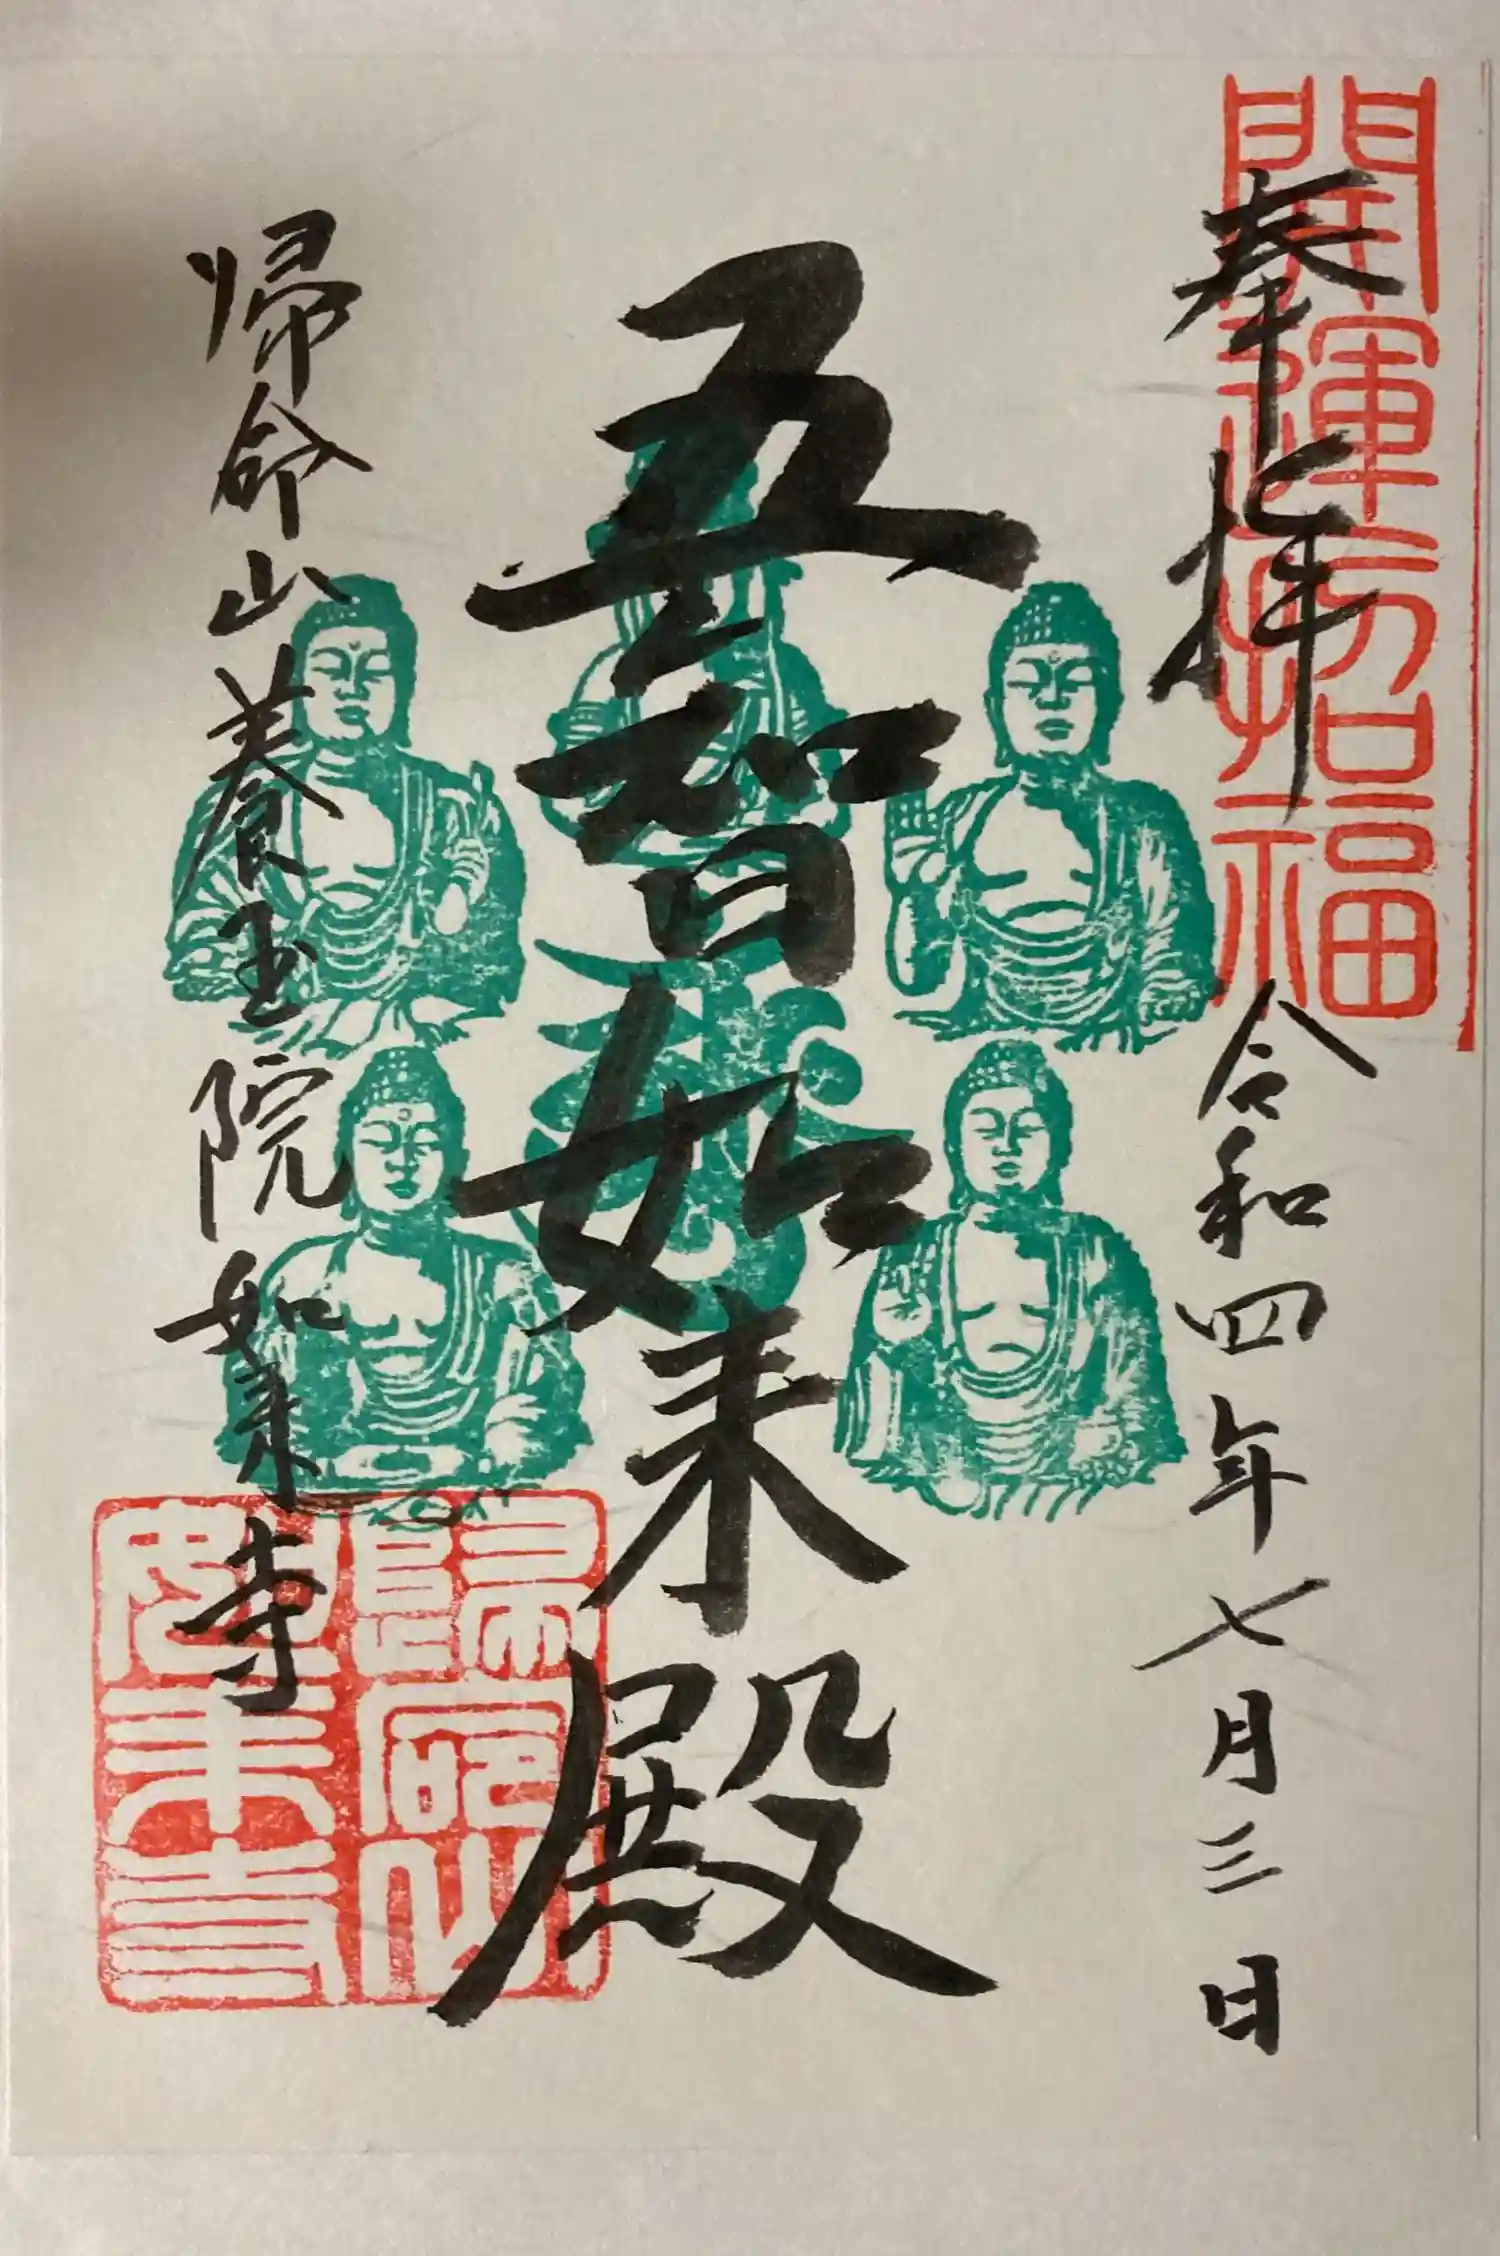 開運招福
奉拝
令和四年七月三日
五智如来殿
帰命山養玉院如来寺
歸命山
如来寺